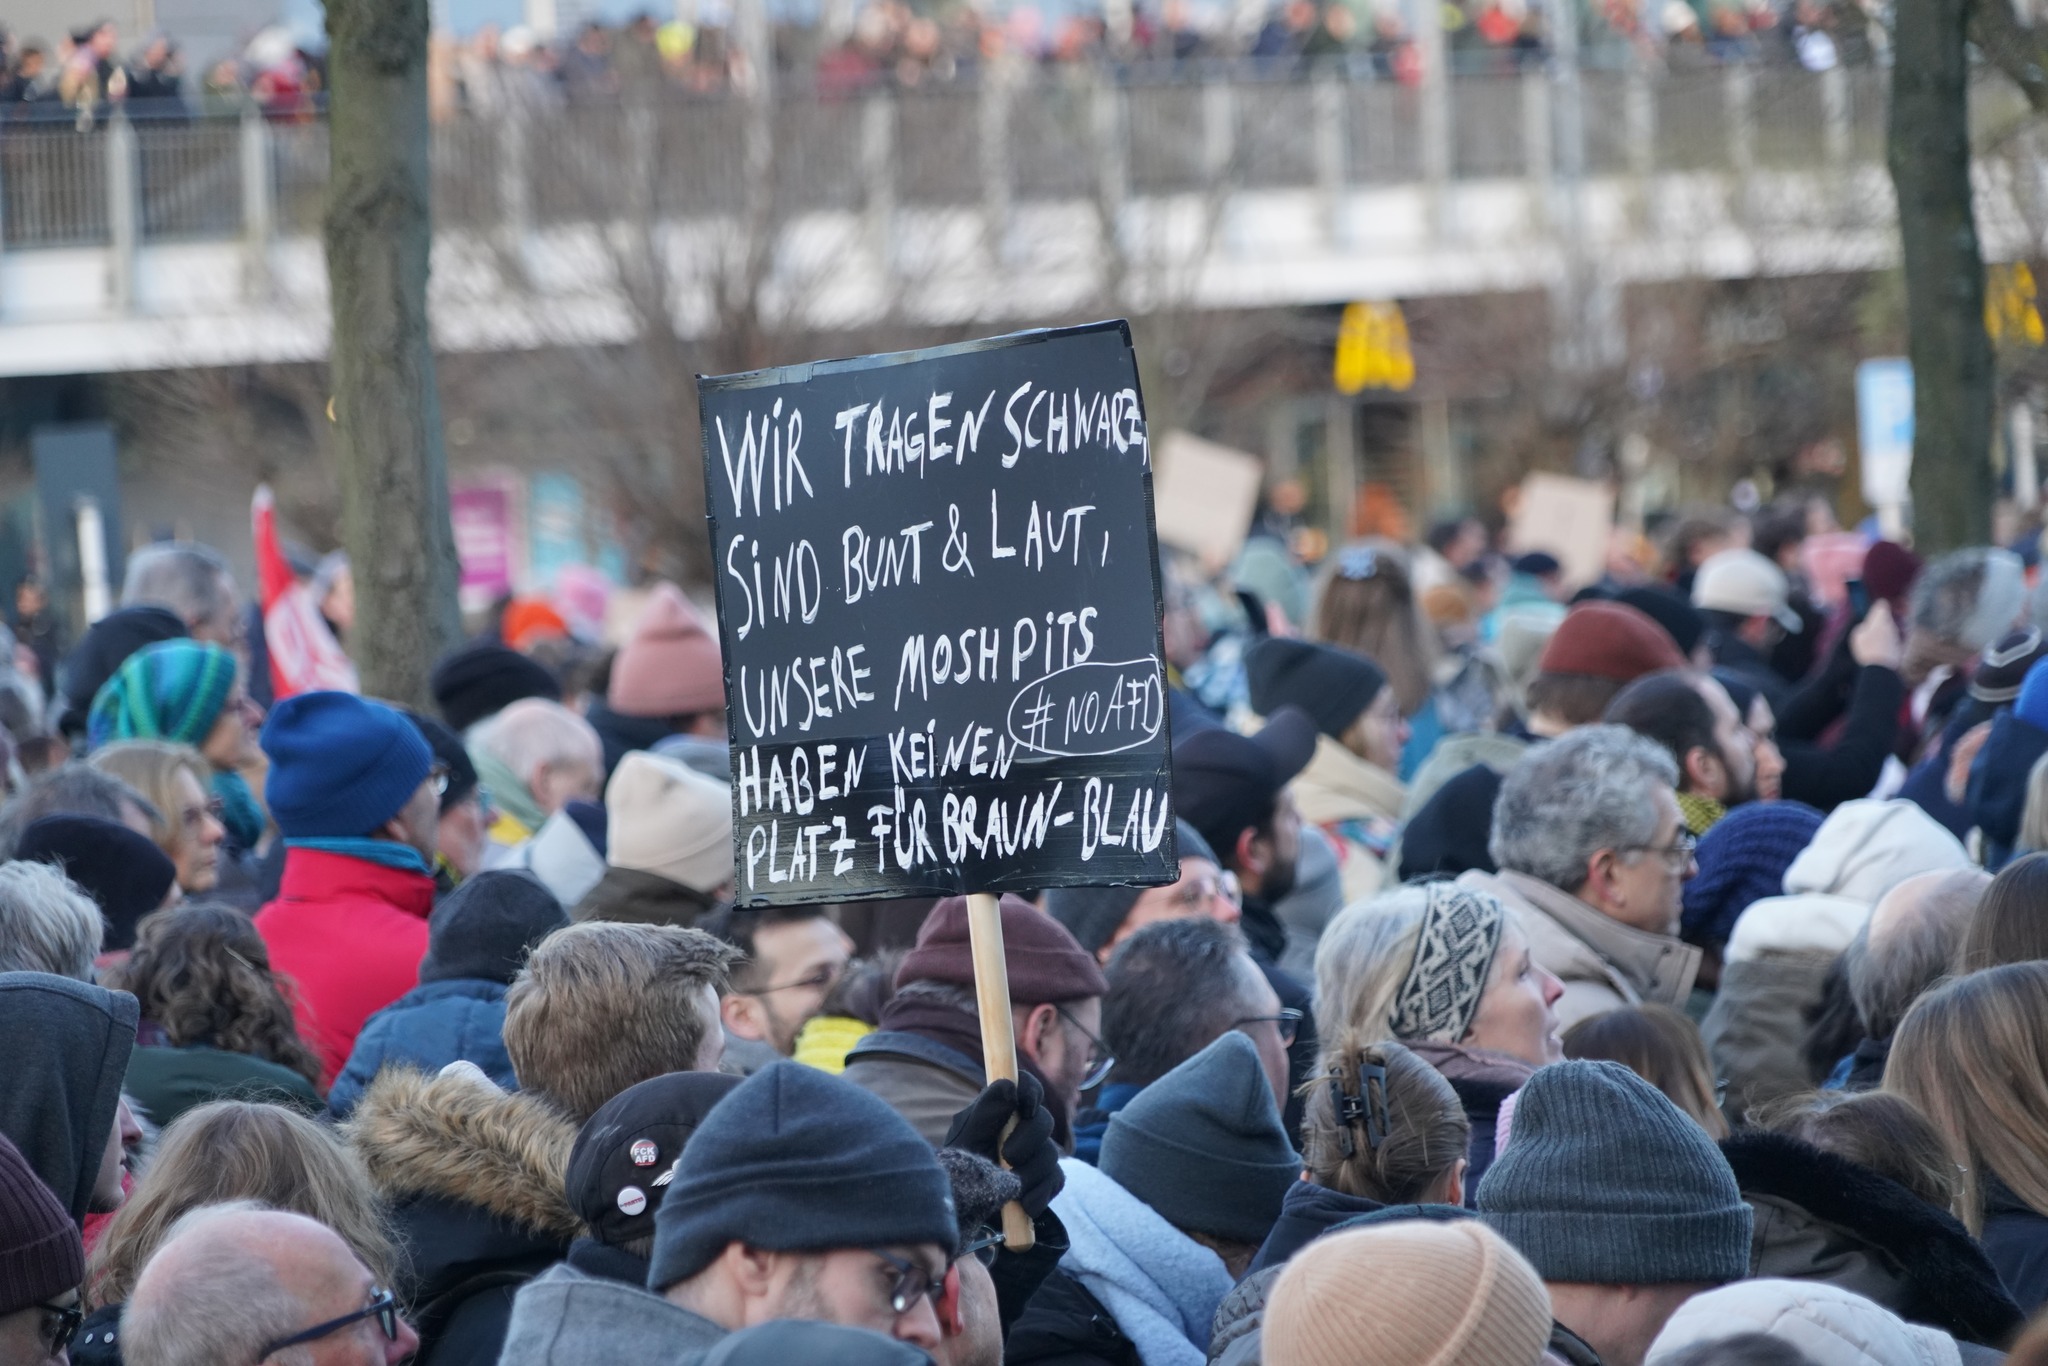 WIR TRAGEN SCHWARZ,
SIND BUNT & LAUT,
UNSERE MOSHPITS
HABEN KEINEN
#NOAFD
PLATZ FÜR BRAUN-BLAU
FCK
AFD